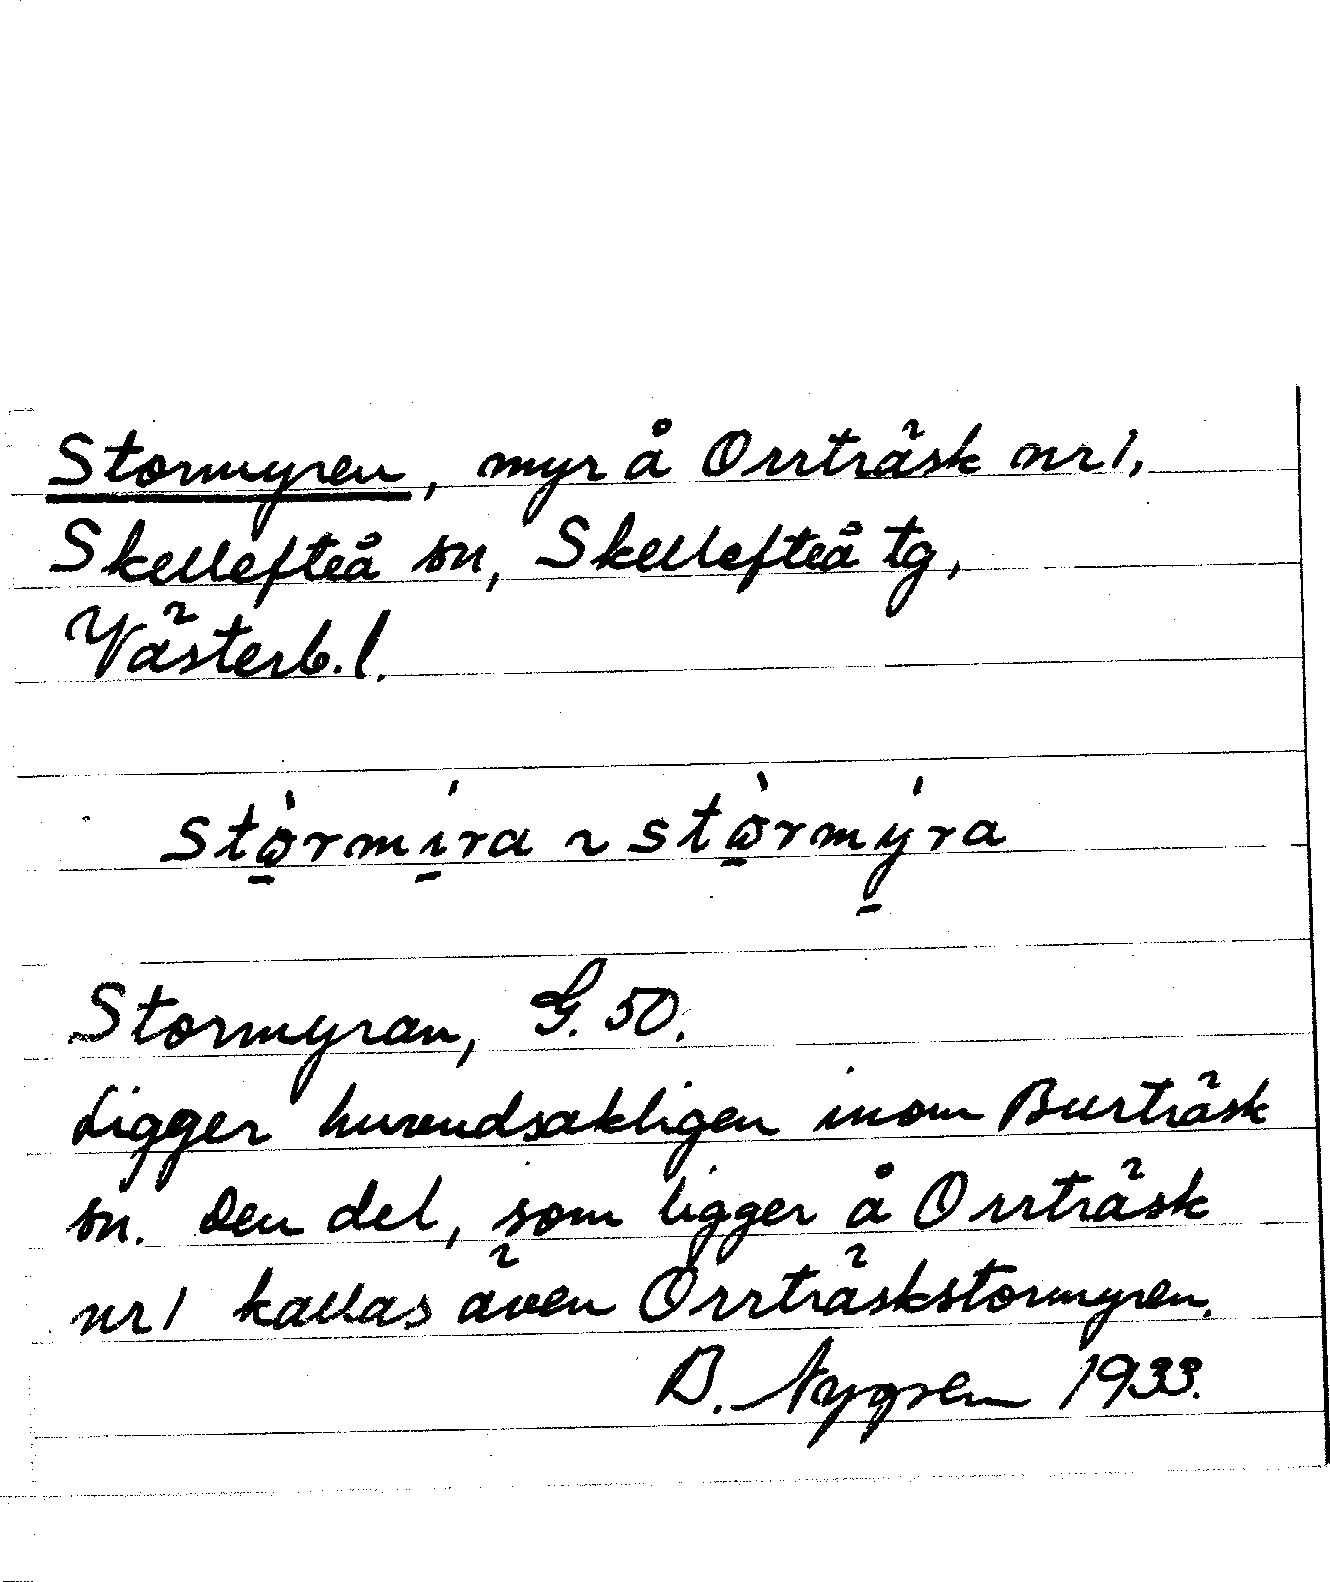 Stormyren, myr å Orrträsk nr 1,
Skellefteå sn, Skellefteå tg,
Västerb. l.
stò̱rmí̱ra ~ stò̱rmý̱ra
Stormyran, G. 50.
Ligger huvudsakligen inom Burträsk
sn. Den del, som ligger å Orrträsk
nr 1 kallas även Orrträskstormyren.
B. Nygren 1933.